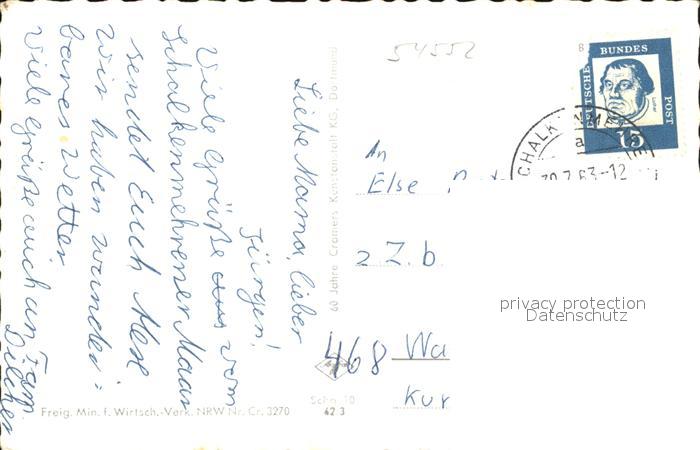 54552
8
DEUTSCHE BUNDES POST
Luther
15
SCHALKENMEHREN
a
30.7.63-12
Liebe Mama, lieber
Jürgen!
Viele Grüße aus vom
Schalkenmehrener Maar
sendet Euch Alex
Wir haben wunder=
bares Wetter
Viele Grüße auch an Fam.
An
Else
z. Zb.
468 Wa
Kur
60 Jahre Cramers Kunstanstalt KG, Dortmund
Freig. Min. f. Wirtsch.-Verk. NRW Nr. Cr. 3270
Scha 10
62 3
privacy protection
Datenschutz